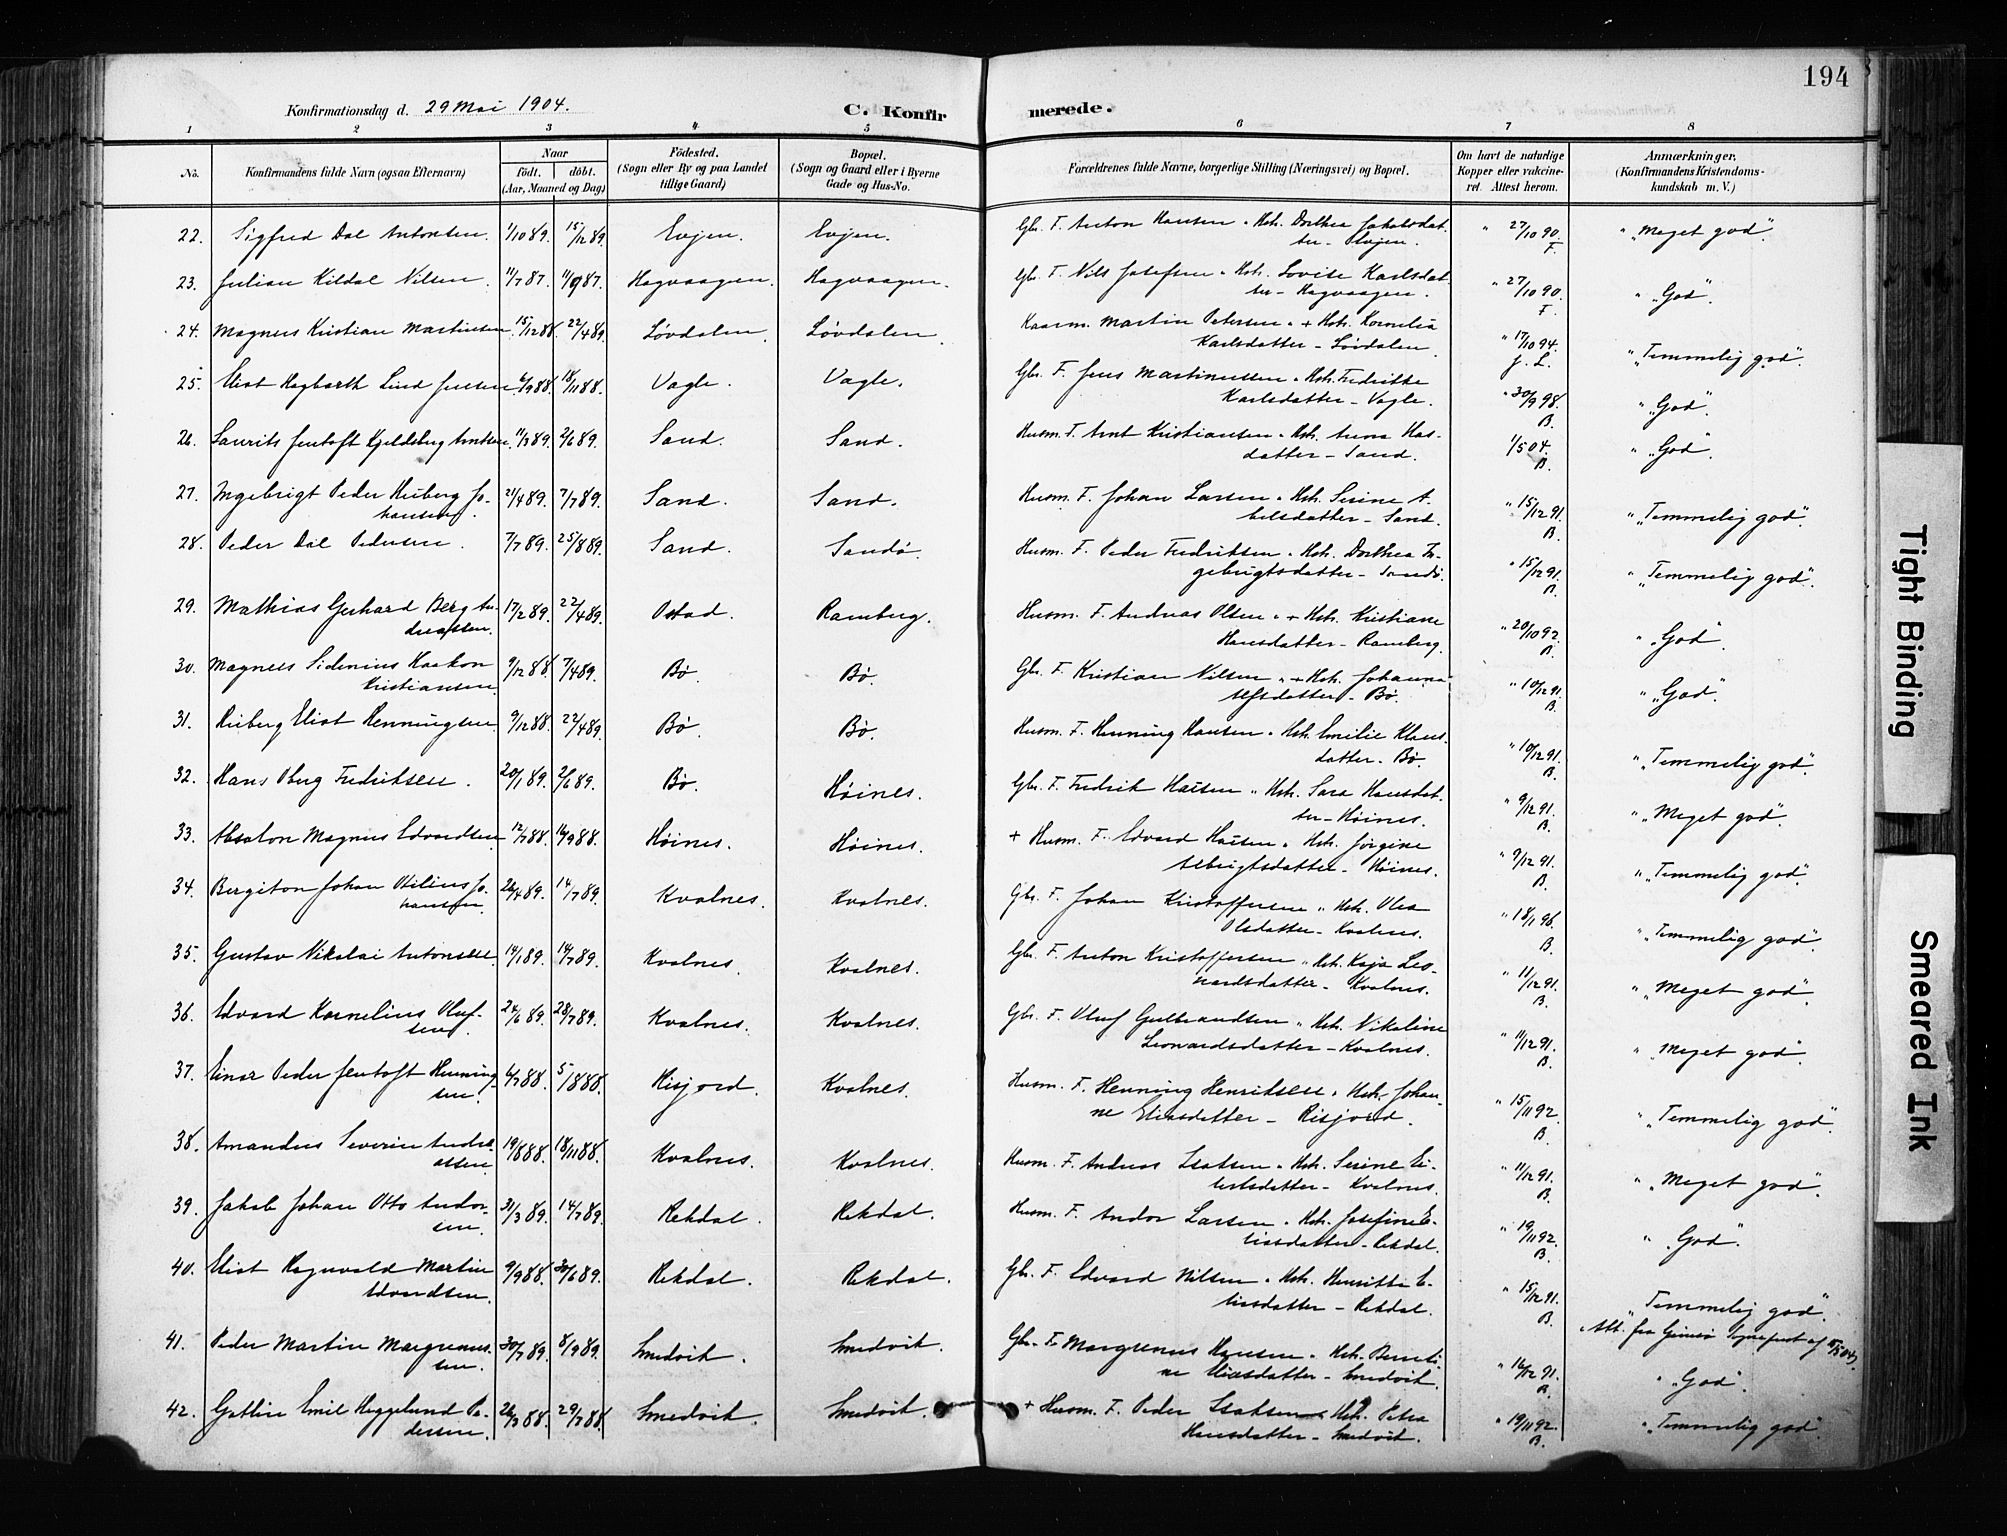 194
Konfirmationsdag d. 29 Mai 1904.
C. Konfirmerede.
1 2 3 4 5 6 7 8
No.
Konfirmandens fulde Navn (ogsaa Efternavn)
Naar
født. døbt.
(Aar, Maaned og Dag)
Fødested.
(Sogn eller By og paa Landet
tillige Gaard)
Bopæl.
(Sogn og Gaard eller i Byerne
Gade og Hus-No.
Forældrenes fulde Navne, borgerlige Stilling (Næringsvei) og Bopæl.
Om havt de naturlige
Kopper eller vakcine-
ret. Attest herom.
Anmærkninger.
(Konfirmandens Kristendoms-
kundskab m. V.)
22. Sigfred Dal Antonsen. 1/10 89. 15/12 89. Evjen. Evjen. Gbr. F. Anton Hansen. Hst. Dorthea Jakobsdat-
ter - Evjen. " 27/10 90. F. "Meget god".
23. Julian Kildal Nilsen. 11/7 87. 11/9 87. Hagvaagen. Hagvaagen. Gbr. F. Nils Josefsen. Hst. Lovise Karlsdat-
ter - Hagvaagen. " 27/10 90. F. "God".
24. Magnus Kristian Martinsen. 15/12 88. 22/4 89. Løvdalen. Løvdalen. Kaarm. Martin Petersen. + Hst. Kornelia
Karlsdatter - Løvdalen. " 17/10 94. J. L. "Temmelig god".
25. Eliot Hagbarth Lind Jensen. 6/9 88. 18/11 88. Vagle. Vagle. Gbr. F. Jens Martinussen. Hst. Fredrikke
Karlsdatter - Vagle. " 30/9 98. B. "God".
26. Laurits Jentoft Kjeldsberg Arntsen. 11/3 89. 2/6 89. Sand. Sand. Husm. F. Arnt Kristiansen. Hst. Anna
datter - Sand. 1/5 04. B. "God".
27. Ingebrigt Peder Hiberg Jo-
hansen. 21/4 89. 7/7 89. Sand. Sand. Husm. F. Johan Larsen. Hst. Serine A-
belsdatter - Sand. " 15/12 91. B. "Temmelig god".
28. Peder Dal Pedersen. 7/7 89. 25/8 89. Sand. Sandø. Husm. F. Peder Fredriksen. Hst. Dorthea In-
gebrigtsdatter - Sandø. " 15/12 91. B. "Temmelig god".
29. Mathias Gerhard Berg An-
dreassen. 17/2 89. 22/4 89. Ostad. Ramberg. Husm. F. Andreas Olsen. + Hst. Kristiane
Hansdatter - Ramberg. " 20/10 92. B. "God".
30. Magnus Sidenius Haakon
Kristiansen. 9/12 88. 7/4 89. Bø. Bø. Gbr. F. Kristian Nilsen. + Hst. Johanna
datter - Bø. " 10/12 91. B. "God".
31. Hiberg Eliot Henningsen. 9/12 88. 22/4 89. Bø. Bø. Husm. F. Henning Hansen. Hst. Emilie Klaus-
datter - Bø. " 10/12 91. B. "Temmelig god".
32. Hans Oberg Fredriksen. 20/1 89. 2/6 89. Bø. Høines. Gbr. F. Fredrik Hansen. Hst. Sara Hansdat-
ter - Høines. " 9/12 91. B. "Meget god".
33. Absalon Magnus Edvardsen. 12/7 88. 16/9 88. Høines. Høines. + Husm. F. Edvard Hansen. Hst. Jørgine
Albrigtsdatter - Høines. " 9/12 91. B. "Temmelig god".
34. Bergiton Johan Otilius Jo-
hansen. 26/4 89. 14/7 89. Kvalnes. Kvalnes. Gbr. F. Johan Kristoffersen. Hst. Olea
Olsdatter - Kvalnes. " 18/1 96. B. "Temmelig god".
35. Gustav Nikolai Antonsen. 14/1 89. 14/7 89. Kvalnes. Kvalnes. Gbr. F. Anton Kristoffersen. Hst. Kaja Leo-
nardsdatter - Kvalnes. " 11/12 91. B. "Meget god".
36. Edvard Kornelius Oluf-
sen. 24/6 89. 28/7 89. Kvalnes. Kvalnes. Gbr. F. Oluf Gulbrandsen. Hst. Nikoline
Leonardsdatter - Kvalnes. " 11/12 91. B. "Meget god".
37. Einar Peder Jentoft Henning-
sen. 6/7 88. 5/8 88. Risjord. Kvalnes. Husm. F. Henning Henriksen. Hst. Johan-
ne Eliasdatter - Risjord. " 15/11 92. B. "Temmelig god".
38. Amandus Severin Andre-
assen. 19/8 88. 18/11 88. Kvalnes. Kvalnes. Husm. F. Andreas Isaksen. Hst. Serine
datter - Kvalnes. " 11/12 91. B. "Meget god".
39. Jakob Johan Otto Andor-
sen. 31/3 89. 14/7 89. Rekdal. Rekdal. Husm. F. Andor Larsen. Hst. Josefine E-
liasdatter - Rekdal. " 19/11 92. B. "God".
40. Eliot Ragnvald Martin
Edvardsen. 9/9 88. 30/6 89. Rekdal. Rekdal. Gbr. F. Edvard Nilsen. Hst. Henritte E-
liasdatter - Rekdal. " 15/12 91. B. "Temmelig god".
41. Peder Martin Margrenus-
sen. 30/7 89. 8/9 89. Smedvik. Smedvik. Gbr. F. Margrenus Hansen. Hst. Benti-
ne Eliasdatter - Smedvik. " 16/12 91. B. Att. fra Gimsø Sognepræst af 11/5 04. "God".
42. Gotlin Emil Heggelund Pe-
dersen. 26/3 88. 29/7 88. Smedvik. Smedvik. + Husm. F. Peder Isaksen. Hst. Petra
Hansdatter - Smedvik. " 19/11 92. B. "Temmelig god".
Tight Binding
Smeared Ink